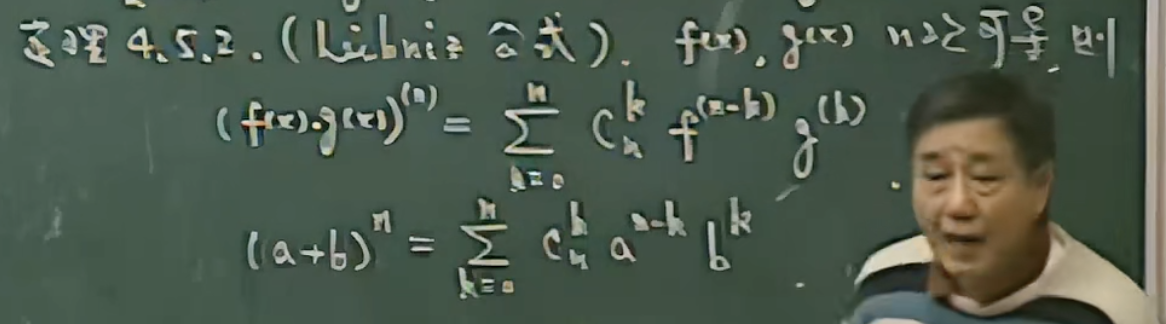 定理 4.5.2. (Leibniz 公式). f(x), g(x) n 次可导, 则
(f(x)·g(x))^(n) = ∑_{k=0}^{n} C_n^k f^(n-k) g^(k)
(a+b)^n = ∑_{k=0}^{n} C_n^k a^{n-k} b^k